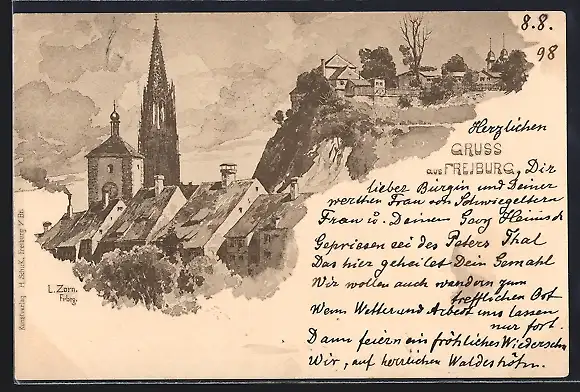 8.8.
98
Herzlichen
GRUSS
aus FREIBURG, Dir
lieber Bürgin und Deiner
werthen Frau von Schwiegeltern
Frau u. Deinem Georg
Gepriesen sei des Peters Thal
Das hier geheilet Dein Gemahl
Wir wollen auch wandern zum
trefflichen Ort
Wenn Wetter und Arbeit uns lassen
nur fort.
Dann feiern ein fröhliches Wiedersehn
Wir, auf herrlichen Waldeshöhn.
L. Zorn.
Frbrg.
Kunstverlag H. Schick, Freiburg i/Br.